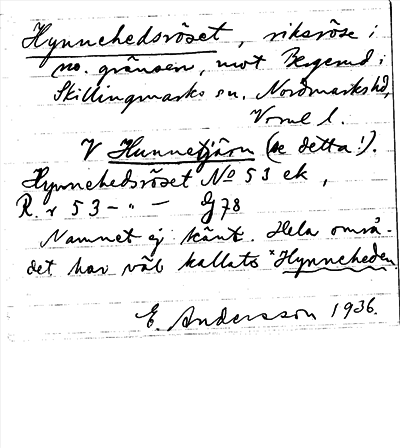 Hynnehedsröset, riksröse i
no. gränsen, mot Bogerud i
Skillingmarks sn, Nordmarks hd,
Vrml l.
V Hunnetjärn (se detta!).
Hynnehedsröset No 53 ek,
R. r 53 - " - G 78
Namnet ej känt. Hela områ-
det har väl kallats *Hynneheden.
E. Andersson 1936.